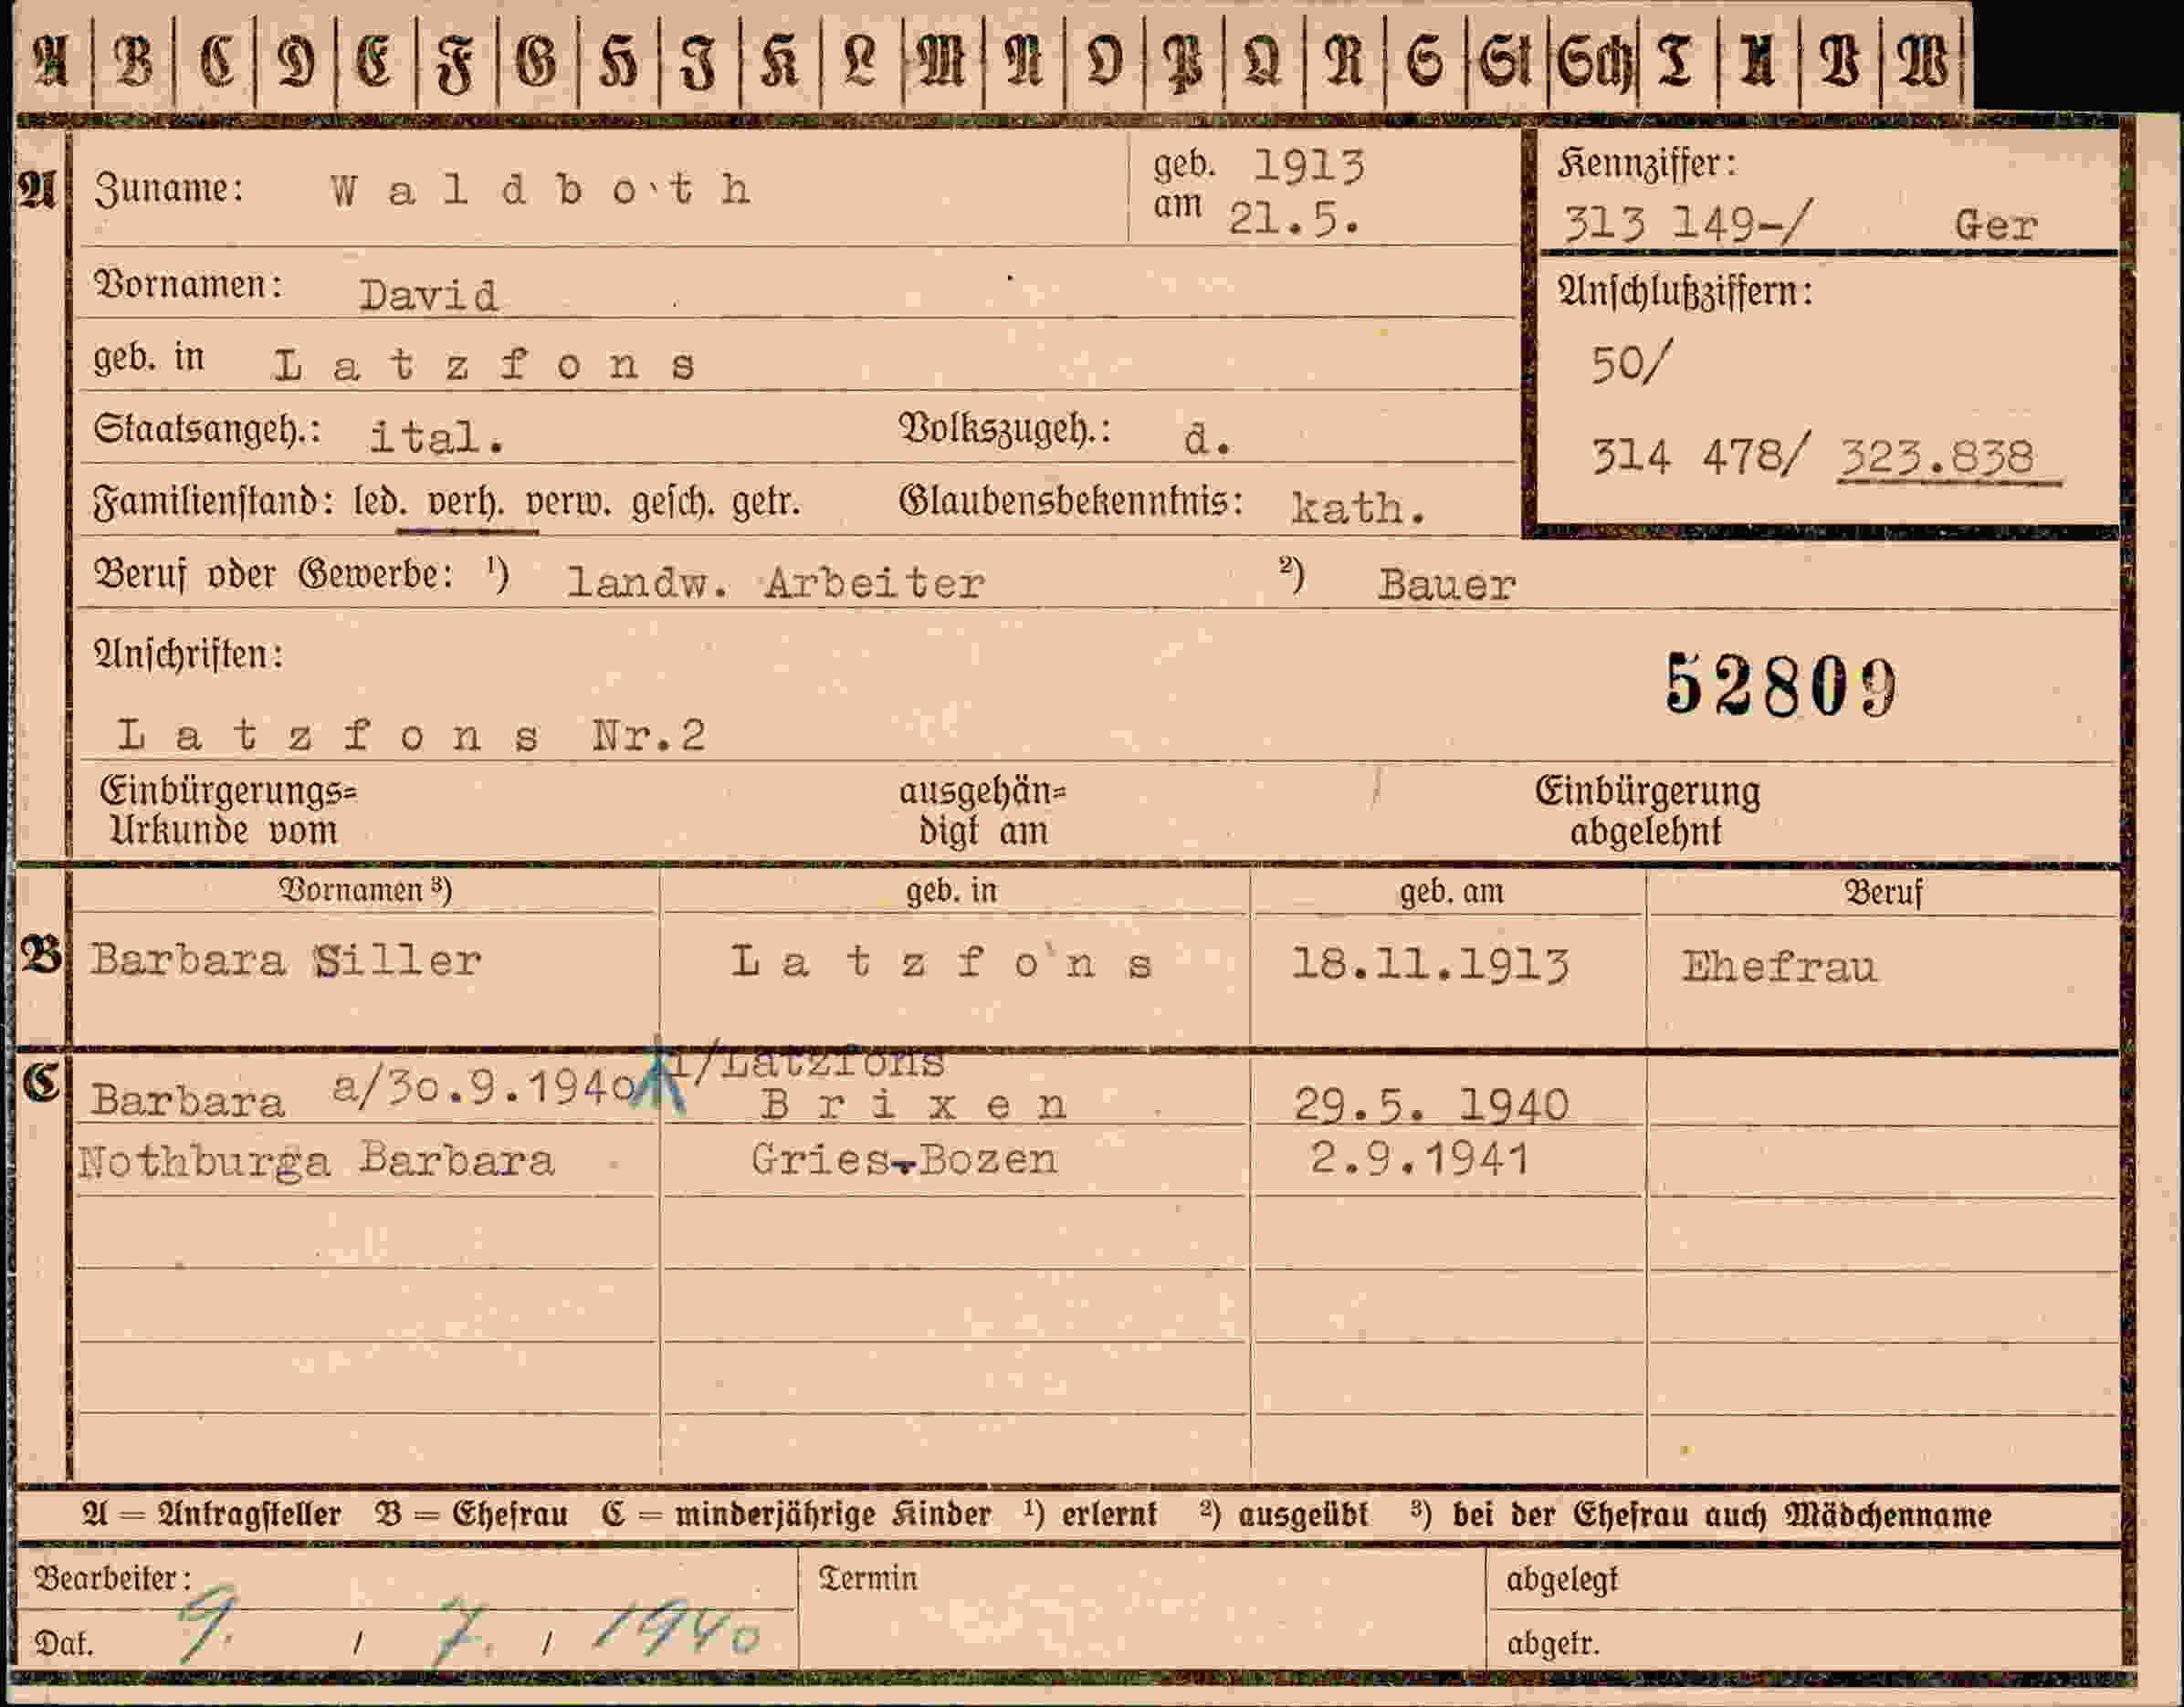 A B C D E F G H I K L M N O P Q R S St Sch T U V W
A Zuname: Waldboth geb. am 1913 21.5. Kennziffer: 313 149-/ Ger
Vornamen: David Anschlußziffern:
geb. in Latzfons 50/
Staatsangeh.: ital. Volkszugeh.: d. 314 478/ 323.838
Familienstand: led. verh. verw. gesch. getr. Glaubensbekenntnis: kath.
Beruf oder Gewerbe: ¹) landw. Arbeiter ²) Bauer
Anschriften: 52809
Latzfons Nr.2
Einbürgerungs= ausgehän= Einbürgerung
Urkunde vom digt am abgelehnt
Vornamen ³) geb. in geb. am Beruf
B Barbara Siller Latzfons 18.11.1913 Ehefrau
1/Latzfons
C Barbara a/30.9.1940 Brixen 29.5. 1940
Nothburga Barbara Gries-Bozen 2.9.1941
A = Antragsteller B = Ehefrau C = minderjährige Kinder ¹) erlernt ²) ausgeübt ³) bei der Ehefrau auch Mädchenname
Bearbeiter: Termin abgelegt
Dat. 9. / 7. / 1940 abgetr.